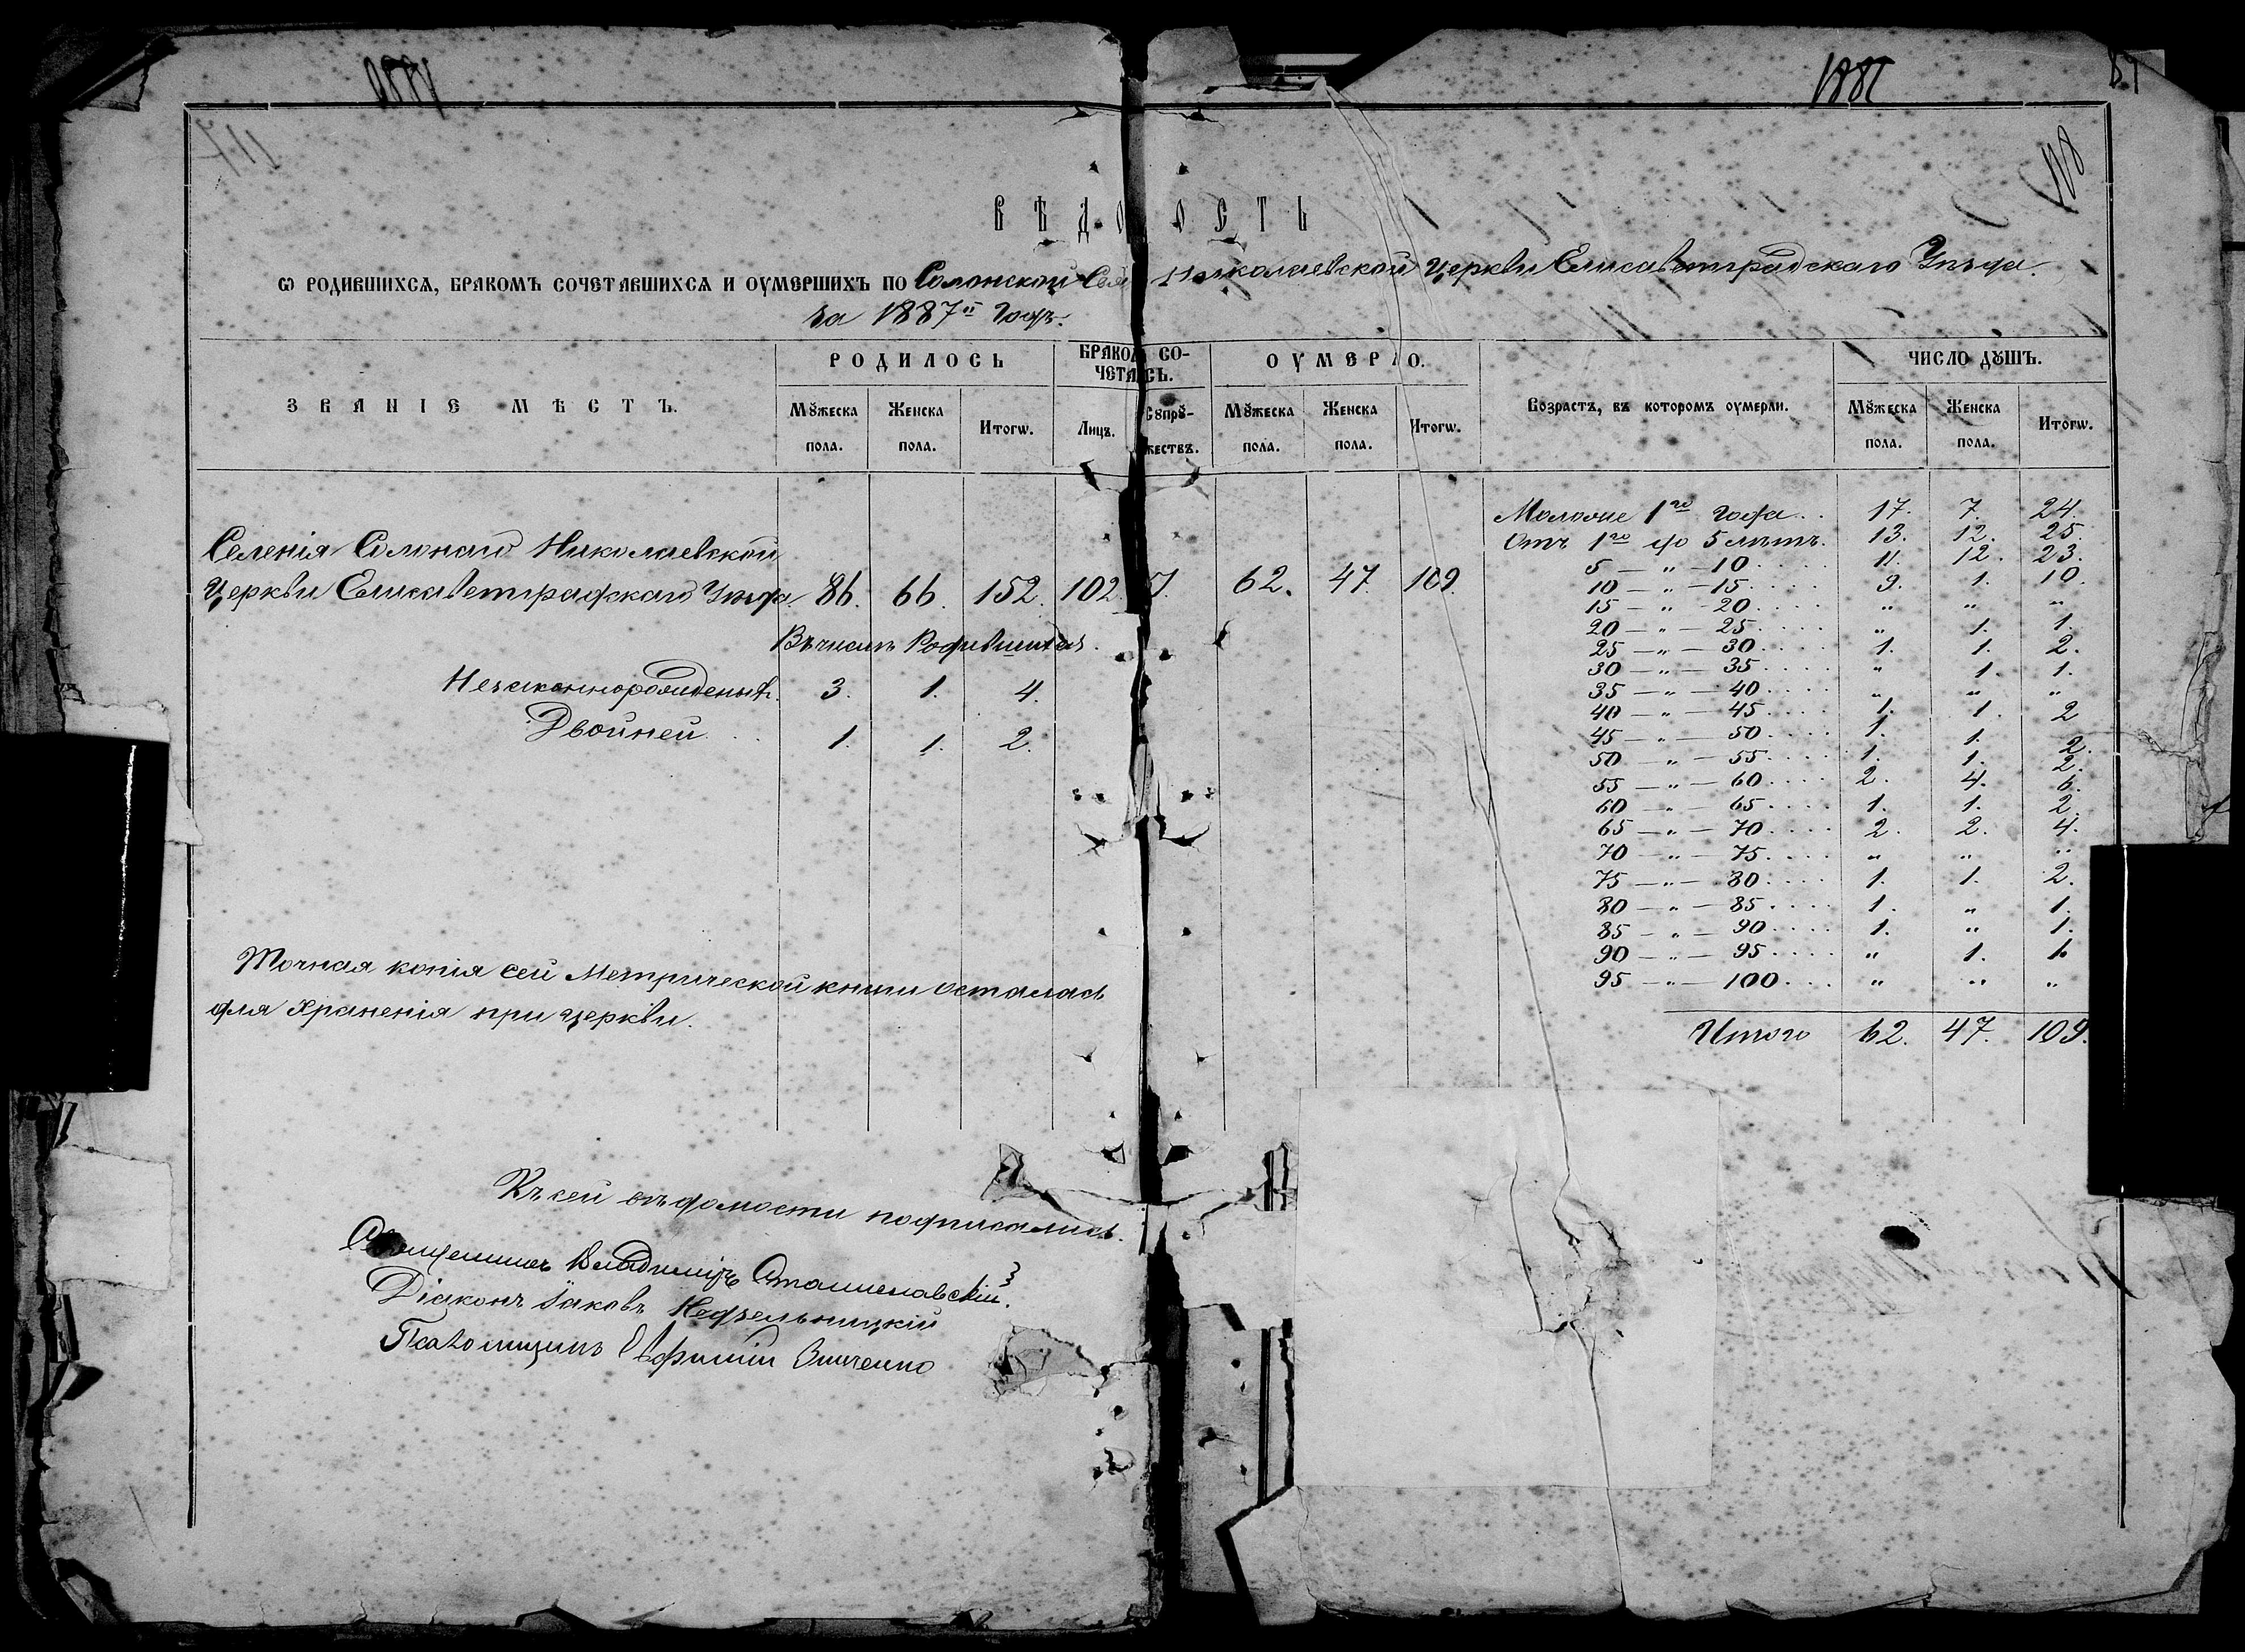 1887
118
ВѢДОМОСТЬ
Ѡ РОДИВШИХСѦ, БРАКОМЪ СОЧЕТАВШИХСѦ И ОУМЕРШИХЪ ПО Солонской Николаевской Церкви Елисаветградскаго Уѣзда.
за 1887й Годъ.
ЗВАНІЕ МѢСТЪ.
РОДИЛОСЬ
БРАКОМ СО-
ЧЕТАСЬ.
ОУМЕРЛО.
Возрастъ, въ которомъ оумерли.
ЧИСЛО ДꙊШЪ.
Мꙋжеска пола. Женска пола. Итогѡ. Лицъ. Сꙋпрꙋ-жествъ. Мꙋжеска пола. Женска пола. Итогѡ. Мꙋжеска пола. Женска пола. Итогѡ.
Селенія Солонаго Николаевской
Церкви Елисаветградскаго Уѣзда 86. 66. 152. 102. 62. 47. 109.
Въ числѣ Родившихся.
Незаконнорожденыхъ. 3. 1. 4.
Двойней . . 1. 1. 2.
Моложе 1го Года . . 17. 7. 24.
Отъ 1го до 5 лѣтъ. 13. 12. 25.
5 — „ — 10 . . . . 11. 12. 23.
10 — „ — 15 . . . . 9. 1. 10.
15 — „ 20 . . . . „ „ „
20 — „ — 25 . . . . „ 1. 1.
25 — „ — 30 . . . . 1. 1. 2.
30 — „ — 35 . . . . „ 1. 1.
35 — „ — 40 . . . . „ „ „
40 — „ — 45 . . . . 1. 1. 2
45 — „ — 50 . . . . 1. 1. 2.
50 — „ — 55 . . . . 1. 1. 2.
55 — „ — 60 . . . . 2. 4. 6.
60 — „ — 65 . . . . 1. 1. 2.
65 — „ — 70 . . . . 2. 2. 4.
70 — „ — 75 . . . . „ „ „
75 — „ — 80 . . . . 1. 1. 2.
80 — „ — 85 . . . . 1. „ 1.
85 — „ — 90 . . . . 1. „ 1.
90 — „ — 95 . . . . „ 1. 1.
95 — „ — 100 . . . „ „ „
Итого 62. 47. 109.
Точная копія сей Метрической книги осталась
для храненія при церкви.
Къ сей вѣдомости подписались.
Священникъ Владиміръ
Діаконъ Іаковъ Недзельницкій
Псаломщикъ Евфимій